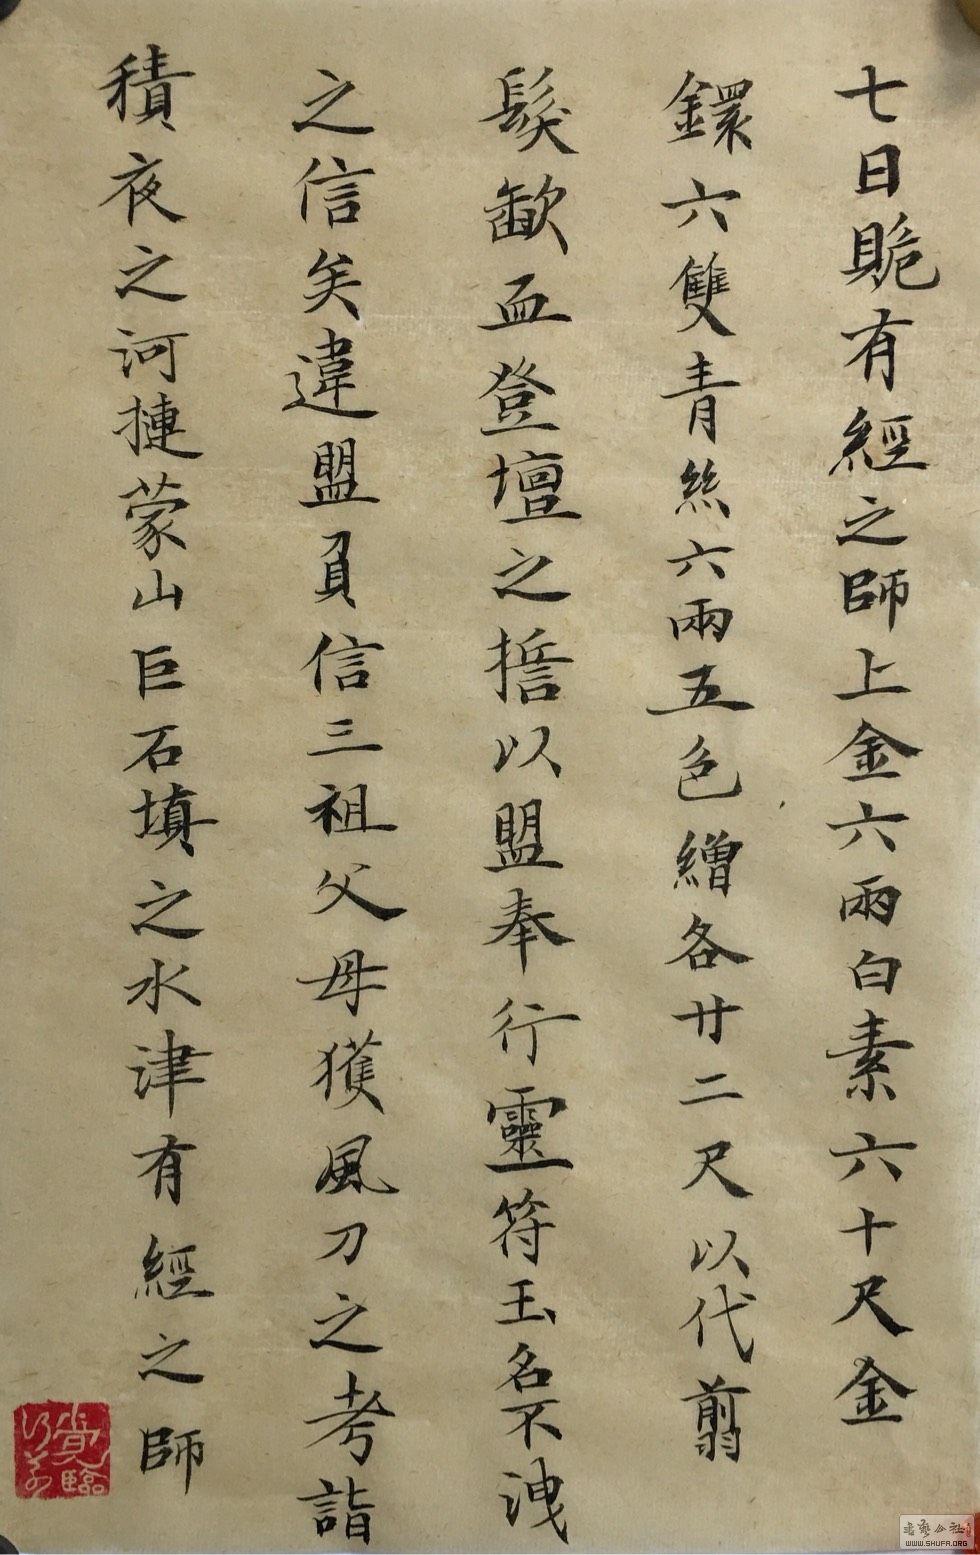 七日賍有經之師上金六兩白素六十尺金
鐶六雙青絲六兩五色繒各廿二尺以代翦
髮歃血登壇之誓以盟奉行靈符玉名不洩
之信矣違盟負信三祖父母獲風刀之考詣
積夜之河摙蒙山巨石填之水津有經之師
WWW.SHUFA.ORG